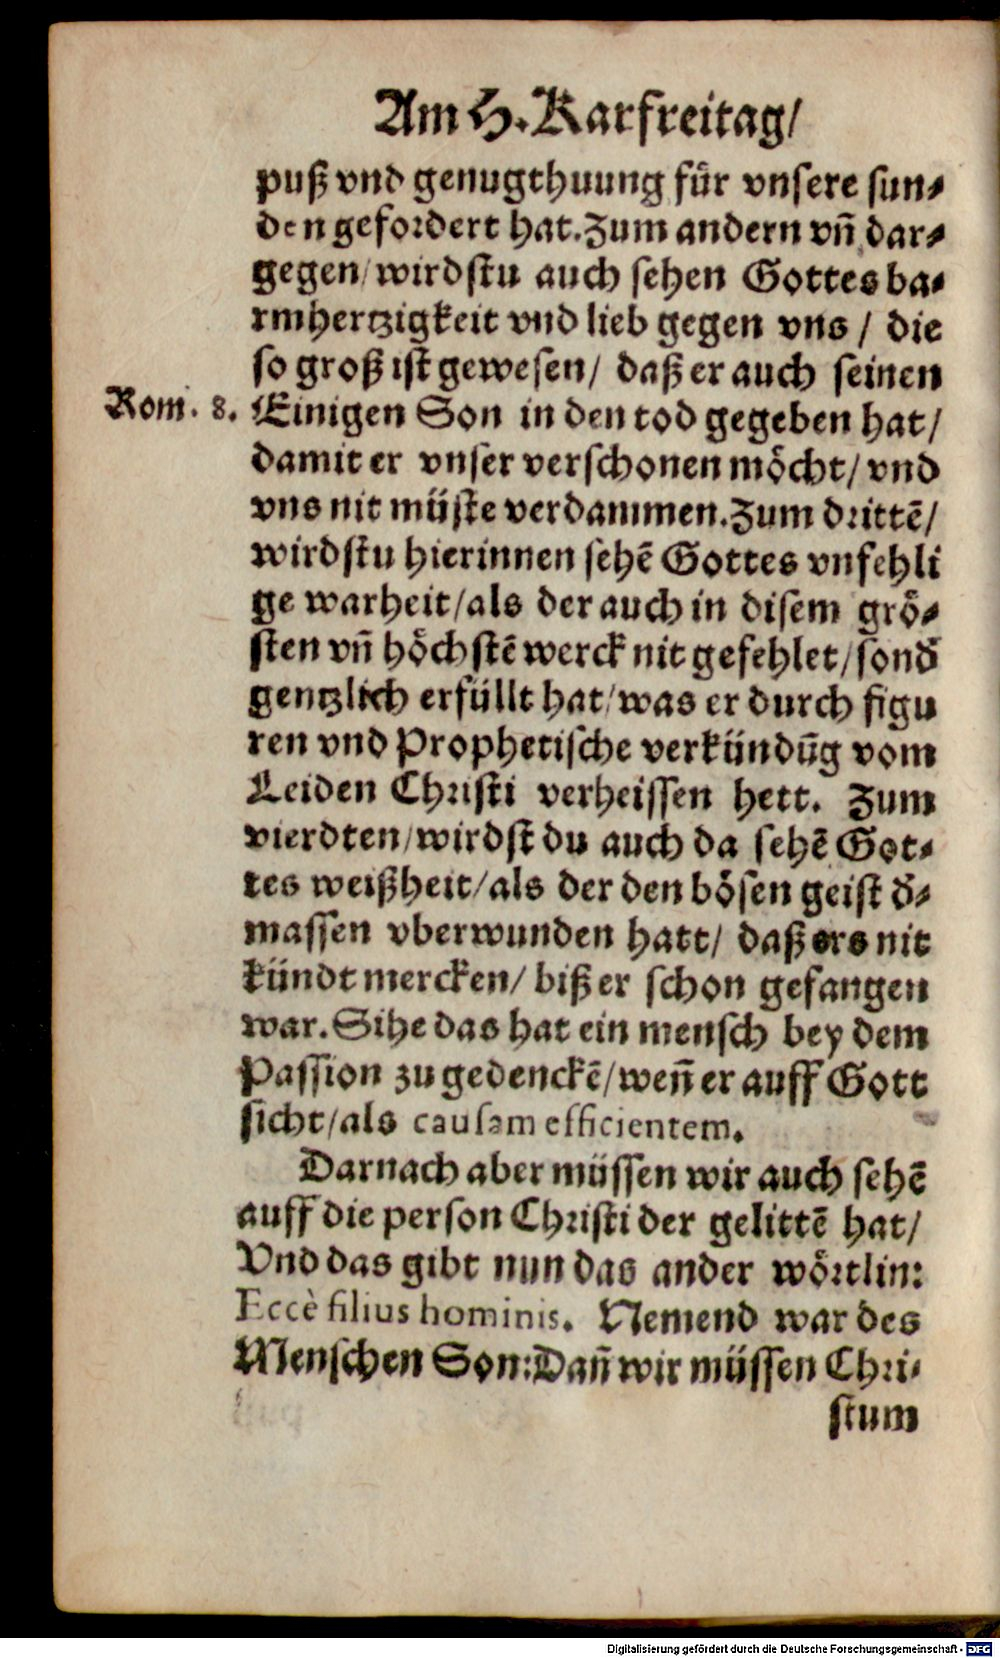 Am H. Karfreitag/
puß vnd genugthuung für vnsere sun⸗
den gefordert hat. Zum andern vñ dar⸗
gegen/ wirdstu auch sehen Gottes ba⸗
rmhertzigkeit vnd lieb gegen vns / die
so groß ist gewesen/ daß er auch seinen
Rom. 8. Einigen Son in den tod gegeben hat/
damit er vnser verschonen möcht/ vnd
vns nit müste verdammen. Zum drittē/
wirdstu hierinnen sehē Gottes vnfehli
ge warheit/ als der auch in disem grö⸗
sten vñ höchstē werck nit gefehlet/ sond̄
gentzlich erfüllt hat/ was er durch figu
ren vnd Prophetische verkündūg vom
Leiden Christi verheissen hett. Zum
vierdten/ wirdst du auch da sehē Got⸗
tes weißheit/ als der den bösen geist d̄⸗
massen vberwunden hatt/ daß ers nit
kündt mercken/ biß er schon gefangen
war. Sihe das hat ein mensch bey dem
Passion zu gedenckē/ weñ er auff Gott
sicht/ als causam efficientem.
Darnach aber müssen wir auch sehē
auff die person Christi der gelittē hat/
Vnd das gibt nun das ander wörtlin:
Eccè filius hominis. Nemend war des
Menschen Son: Dañ wir müssen Chri⸗
stum
Digitalisierung gefördert durch die Deutsche Forschungsgemeinschaft - DFG